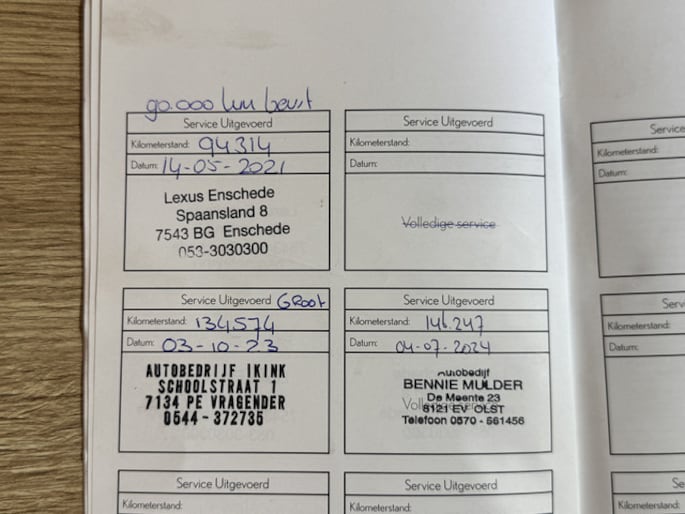 90.000 km beurt
Service Uitgevoerd
Kilometerstand: 94314
Datum: 14-05-2021
Lexus Enschede
Spaansland 8
7543 BG Enschede
053-3030300
Service Uitgevoerd
Kilometerstand:
Datum:
Volledige service
Service
Kilometerstand:
Datum:
Service Uitgevoerd GROOT
Kilometerstand: 134574
Datum: 03-10-23
AUTOBEDRIJF IKINK
SCHOOLSTRAAT 1
7134 PE VRAGENDER
0544 - 372735
Service Uitgevoerd
Kilometerstand: 146.247
Datum: 04-07-2024
Autobedijf
BENNIE MULDER
De Meente 23
8121 EV OLST
Telefoon 0570 - 561456
Kilometerstand:
Datum:
Service Uitgevoerd
Kilometerstand:
Service Uitgevoerd
Kilometerstand:
Kilometerstand: